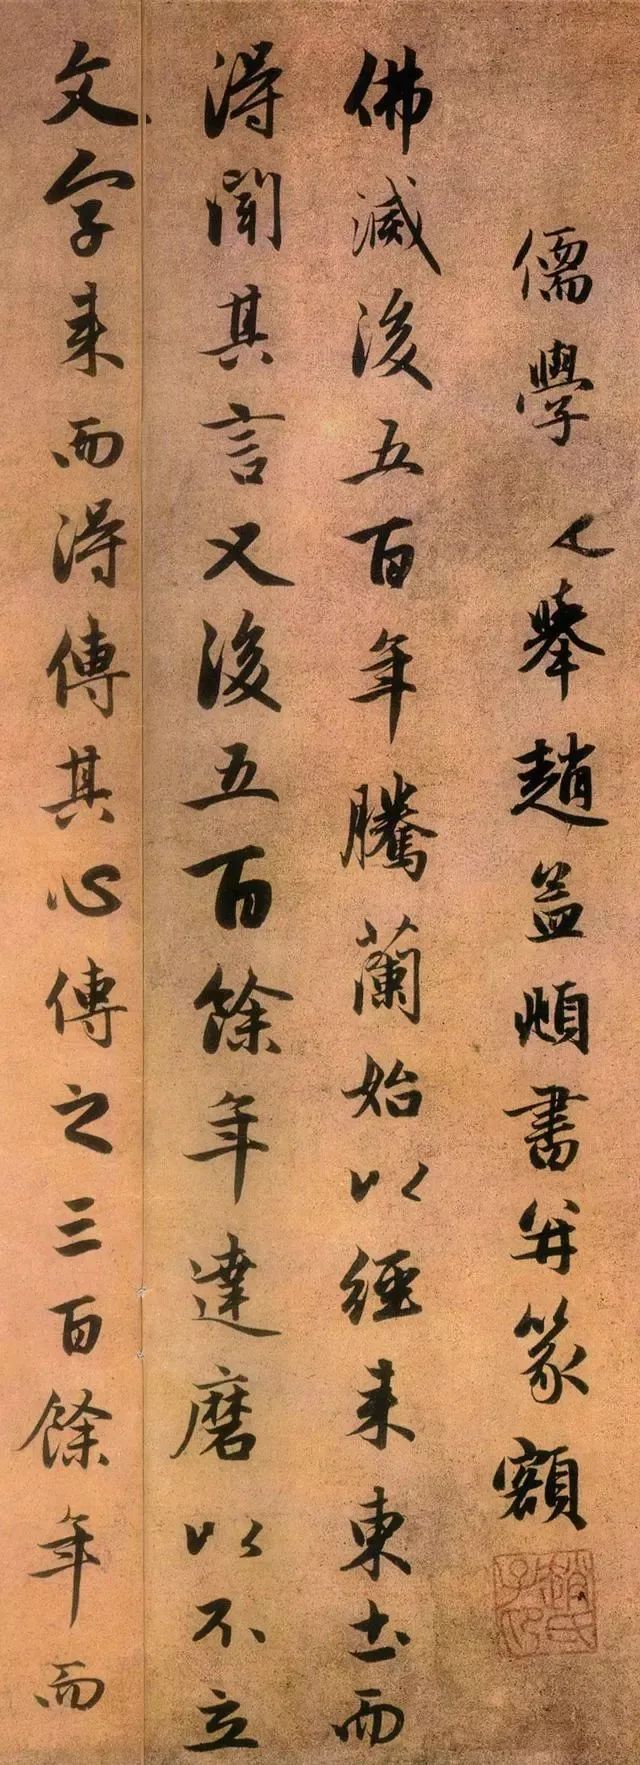 儒學舉趙孟頫書并篆額
趙氏子昂
佛滅後五百年騰蘭始以經來東土而
得聞其言又後五百餘年達磨以不立
文字來而得傳其心傳之三百餘年而